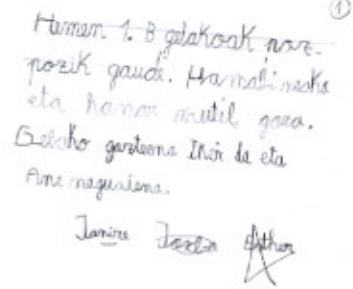 1
Hemen 1. B gelakoak poz-
pozik gaude. Hamabi neska
eta hamar mutil gara.
Gelako gazteena Iker da eta
Ane nagusiena.
Janire Esther